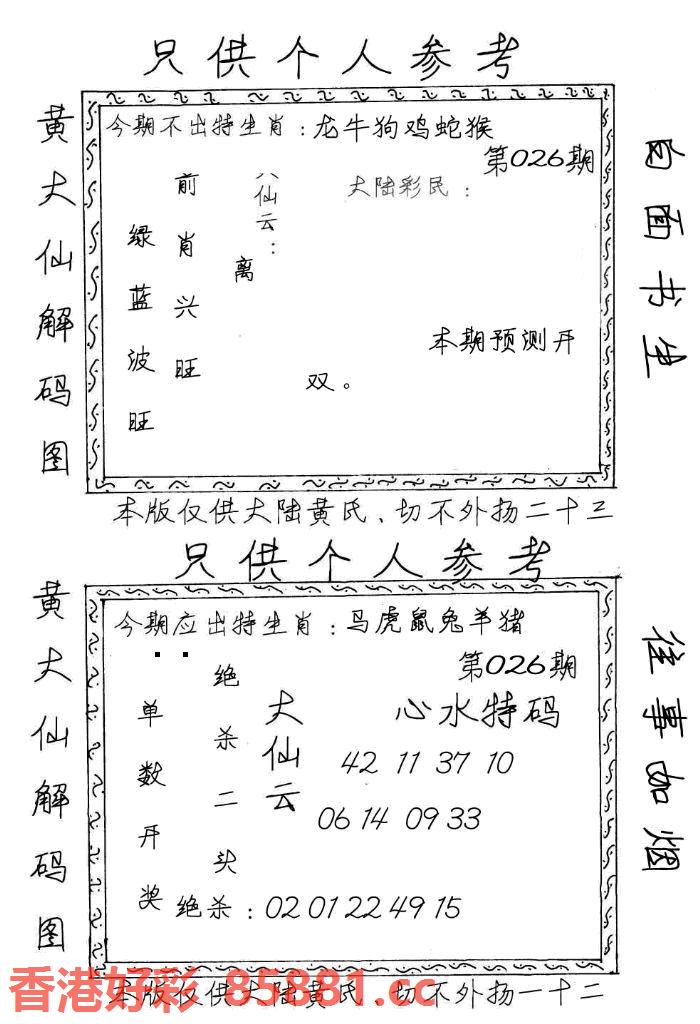 只供个人参考
黄大仙解码图
今期不出特生肖：龙牛狗鸡蛇猴
第026期
大陆彩民：
八仙云：
离
前肖兴旺
绿蓝波旺
本期预测开
双。
白面书生
本版仅供大陆黄氏、切不外扬二十三
只供个人参考
黄大仙解码图
今期应出特生肖：马虎鼠兔羊猪
第026期
心水特码
大仙云
42 11 37 10
06 14 09 33
绝杀二头
单数开奖
绝杀：02 01 22 49 15
往事如烟
本版仅供大陆黄氏、切不外扬一十二
香港好彩 85881.cc